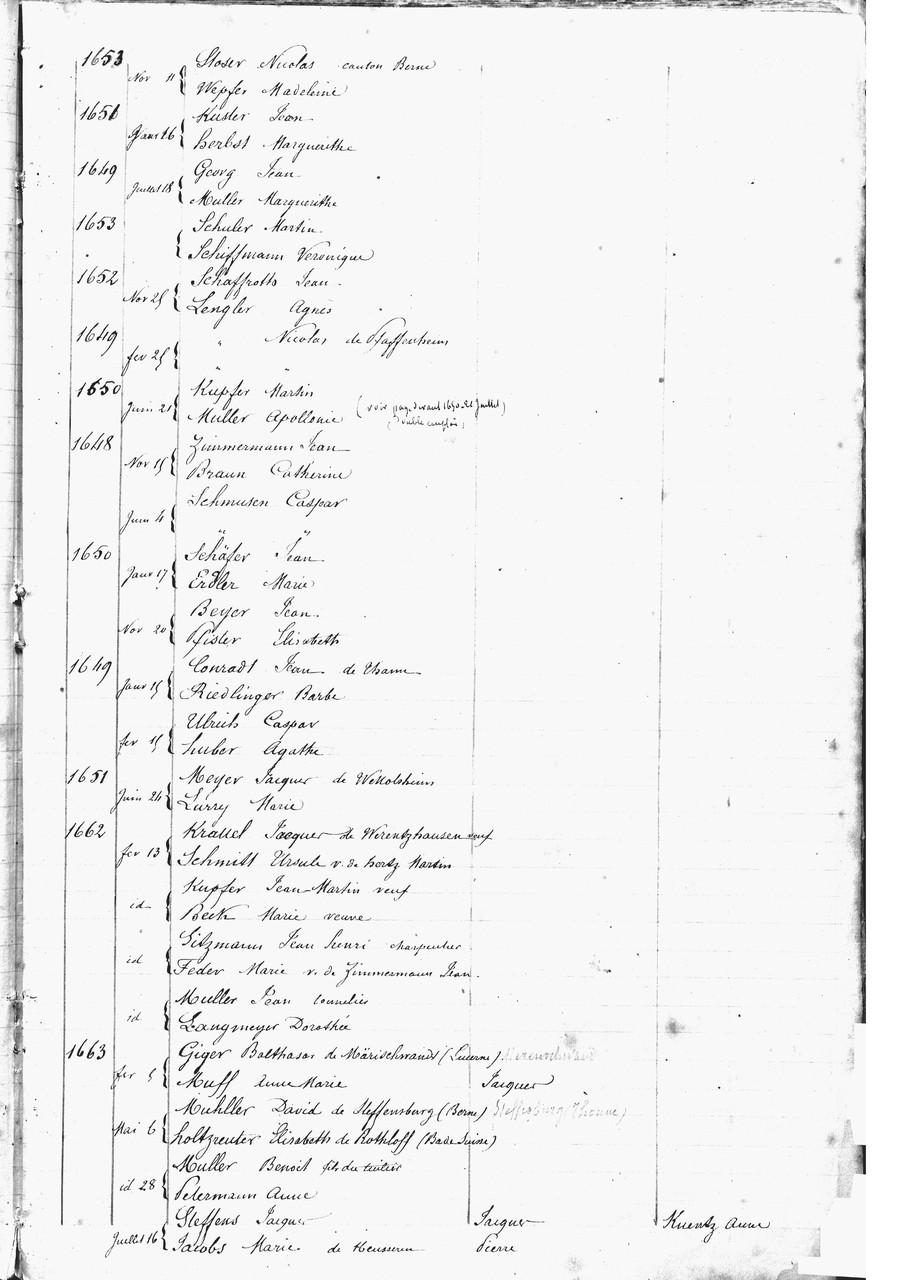 1653 Stoser Nicolas canton Berne
Nov 11 Wepfer Madeleine
1651 Kusler Jean
Janv 26 herbst Marguerithe
1649 Georg Jean
Juillet 18 Muller Marguerithe
1653 Schuler Martin
Schiffmann Veronique
1652 Schaffrotts Jean
Nov 25 Lengler Agnes
1649 " Nicolas de Pfaffenheim
fev 25 " "
1650 Kupfer Martin
Juin 21 Muller Apollonie (voir page devant 1650 21 Juillet)
1648 Zimmermann Jean
Nov 15 Braun Catherine
Schmusen Caspar
Juin 4 " "
1650 Schäfer Jean
Janv 17 Erdler Marie
Beyer Jean
Nov 20 Pfister Elisabeth
1649 Conradt Jean de Thann
Janv 15 Riedlinger Barbe
Ulrich Caspar
fev 15 huber Agathe
1651 Meyer Jacques de Wettolsheim
Juin 24 Lurry Marie
1662 Krattel Jacques de Werentzhausen veuf
fev 13 Schmitt Ursule v. de hertz Martin
Kupfer Jean Martin veuf
id Beck Marie veuve
Sitzmann Jean henri charpentier
id Feder Marie v. de Zimmermann Jean
Muller Jean tonnelier
id Langmeyer Dorothée
1663 Giger Balthasar de Märischwandt (Lucerne)
fev 5 Muff Anne Marie Jacques
Muhller David de Steffensburg (Berne)
Mai 6 holtzreuter Elisabeth de Rothloff (Bade Suisse)
Muller Benoit fils du tuilier
id 28 Petermann Anne
Steffens Jacques Jacques Kuentz Anne
Juillet 16 Jacobs Marie de Heusseren Pierre